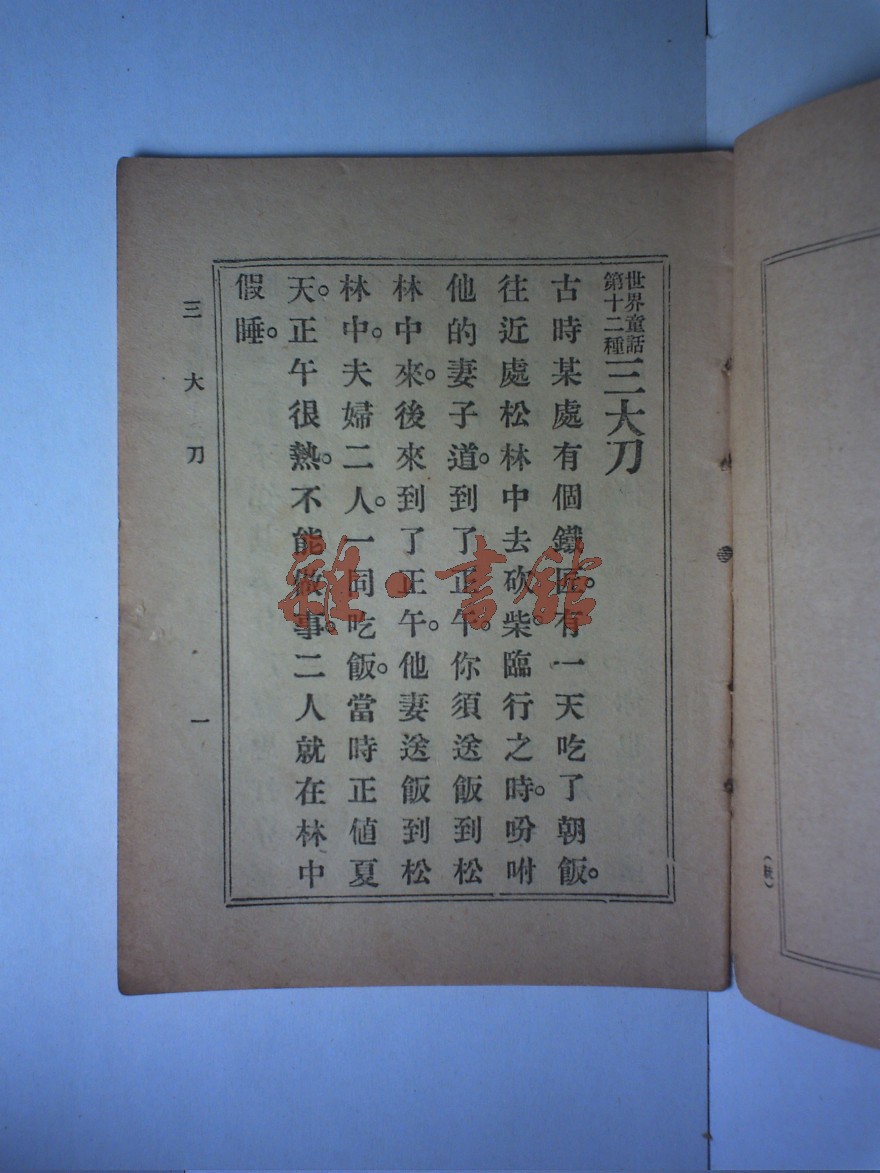 世界童話
第十二種
三大刀
古時某處有個鐵匠。有一天吃了朝飯。
往近處松林中去砍柴。臨行之時。吩咐
他的妻子道。到了正午。你須送飯到松
林中來。後來到了正午。他妻送飯到松
林中。夫婦二人。一同吃飯。當時正值夏
天。正午很熱。不能做事。二人就在林中
假睡。
三大刀
一
雜·書館